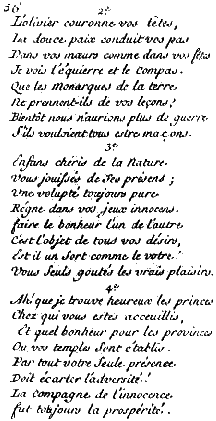 56
2e
L'olivier couronne vos têtes,
La douce paix conduit vos pas
Dans vos mœurs comme dans vos fêtes
Je vois l'équierre et le compas.
Que les monarques de la terre
Ne prennent-ils de vos leçons?
Bientôt nous n'aurions plus de guerre
S'ils vouloient tous estre maçons.
3e
Enfans chéris de la Nature
Vous jouissés de ses présens;
Une volupté toujours pure
Règne dans vos jeux innocens.
faire le bonheur l'un de l'autre
C'est l'objet de tous vos désirs,
Est il un sort comme le votre!
Vous seuls goutés les vrais plaisirs.
4e
Ah! que je trouve heureux les princes
Chez qui vous estes acceuillis,
Et quel bonheur pour les provinces
Ou vos temples sont établis.
Par tout votre seule présence
Doit écarter l'adversité!
La compagne de l'innocence
fut toujours la prospérité.